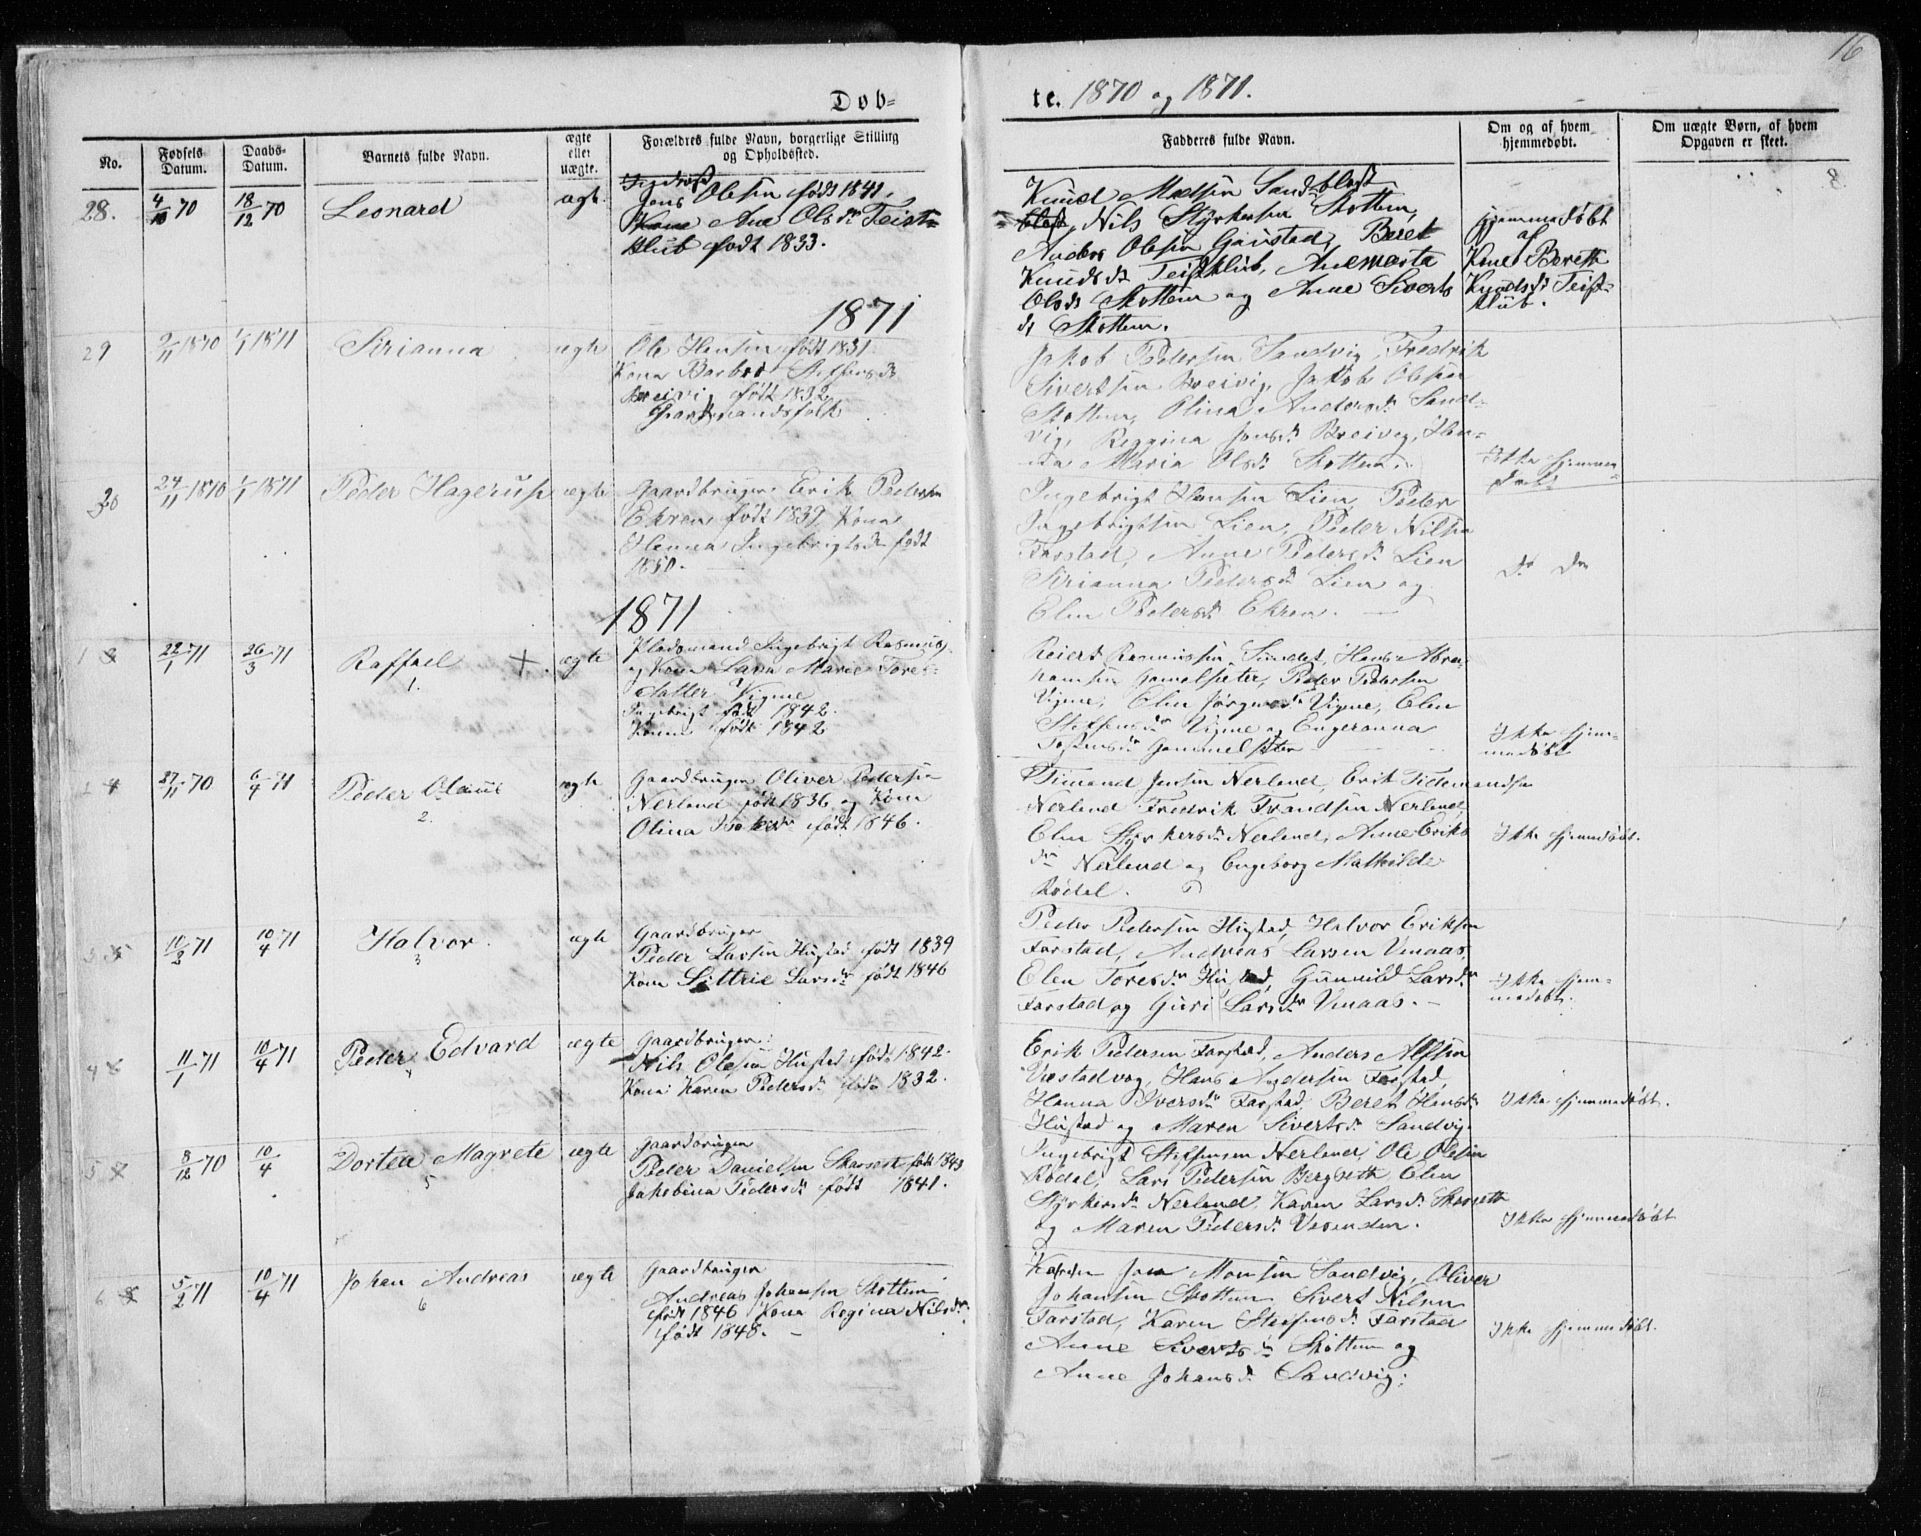 16
Døb-
te. 1870 og 1871.
No.
Fødsels
Datum.
Daabs-
Datum.
Barnets fulde Navn.
ægte
eller
uægte.
Forældres fulde Navn, borgerlige Stilling
og Opholdssted.
Fadderes fulde Navn.
Om og af hvem
hjemmedøbt.
Om uægte Børn, af hvem
Opgaven er skeet.
8.
28.
4/10 70
18/12 70
Leonard
ægt.
Jens Olesen født 1841.
Kone Ane Olsdr Teist-
klub født 1833.
Knud Madsen Sandblast
Nils Styrkersen Skottem,
Anders Olesen Gaustad, Beret
Knudsdr Teistklub, Anemarta
Olsdr Skottem og Anne Siverts
dr Skottem.
hjemmedøbt
af
Kone Bereth
Knudsdr Teist-
klub.
1871
29
2/11 1870
1/1 1871
Sirianna
ægte
Ole Hansen født 1831
Kone Barbro Steffensdr
Breivig født 1832
Jakob Pedersen Sandvig, Fredrik
Sivertsen Breivig, Jakob Olsen
Skottem, Olina Andersdr Sand-
vig, Reggina Jonsdr Breivig, Han-
na Maria Olsdr Skottem.
Ikke hjemme-
døbt
30
24/11 1870
1/1 1871
Peder Hagerup
ægte
Gaardbruger Erik Pedersen
Ekren født 1839 Kone
Hanna Ingebrigtsdr født
1850.
Ingebrigt Hansen Lien, Peder
Ingebrigtsen Lien, Peder Nilsen
Farstad, Anne Pedersdr Lien
Sirianna Pedersdr Lien og
Elen Pedersdr Ekren.
do do
1871
1
22/1 71
26/3 71
Raffael +.
1.
ægte
Pladsmand Ingebrigt Rasmus.
og Kone Lana Marie Tores-
datter Vigme
Ingebrigt født 1842.
Kone født 1842
Reiert Rasmussen Sundet, Hans Abra-
hamsen Gamelseter, Peder Pedersen
Vigme, Elen Jørgensdr Vigme, Elen
Steffensdr Vigme og Engeranna
Tostensdr Gammelseter
Ikke hjem-
medøbt
2 4
27/11 70
6/4 71
Peder Olaus
2.
ægte
Gaardbruger Oliver Pedersen
Nerland født 1836 og Kone
Olina født 1846.
Timand Jensen Nerland, Erik Tidemandsen
Nerland Fredrik Trondsen Nerland,
Elen Styrkersdr Nerland, Anne Eriks
dr Nerland og Engeborg Mathilde
Rødal.
Ikke hjemmedøbt.
3 5
10/2 71
10/4 71
Halvor.
3
ægte
Gaardbruger
Peder Larsen Hustad født 1839
Kone Sittrie Larsdr født 1846
Peder Pedersen Hustad, Halvor Eriksen
Farstad, Andreas Larsen Vinaas,
Elen Toresdr Hustad, Gunnild Larsdr
Farstad og Guri Larsdr Vinaas.
Ikke hjem-
medøbt.
4 6
11/1 71
10/4 71
Peder Edvard
4
ægte
Gaardbruger
Nils Olesen Hustad født 1842.
Kone Karen Pedersdr født 1832.
Erik Pedersen Farstad, Anders Alfsen
Vestadvog, Hans Andersen Farstad,
Hanna Iversdr Farstad, Beret Hansdr
Hustad og Maren Sivertsdr Sandvig
Ikke hjemmedøbt.
5 7
8/12 70
10/4
Dortea Magrete
5
ægte
Gaardbruger
Peder Danielsen Skarset født 1843
Jakobina Pedersdr født 1841.
Ingebrigt Steffensen Nerland, Ole Olesen
Rødal, Lars Pedersen Bergseth Elen
Styrkersdr Nerland, Karen Larsdr Skarseth
og Maren Pedersdr Vevenden.
Ikke hjemmedøbt
6 8
5/2 71
10/4 71
Johan Andreas
6
ægte
Gaardbruger
Andreas Johansen Skottem
født 1846 Kone Regina Nilsdr.
født 1848. –
Jon Monsen Sandvig, Oliver
Johansen Skottem Sivert Nilsen
Farstad, Karen Steffensdr Farstad
Anne Sivertsdr Skottem og
Anne Johansdr Sandvig.
Ikke hjemmedøbt.